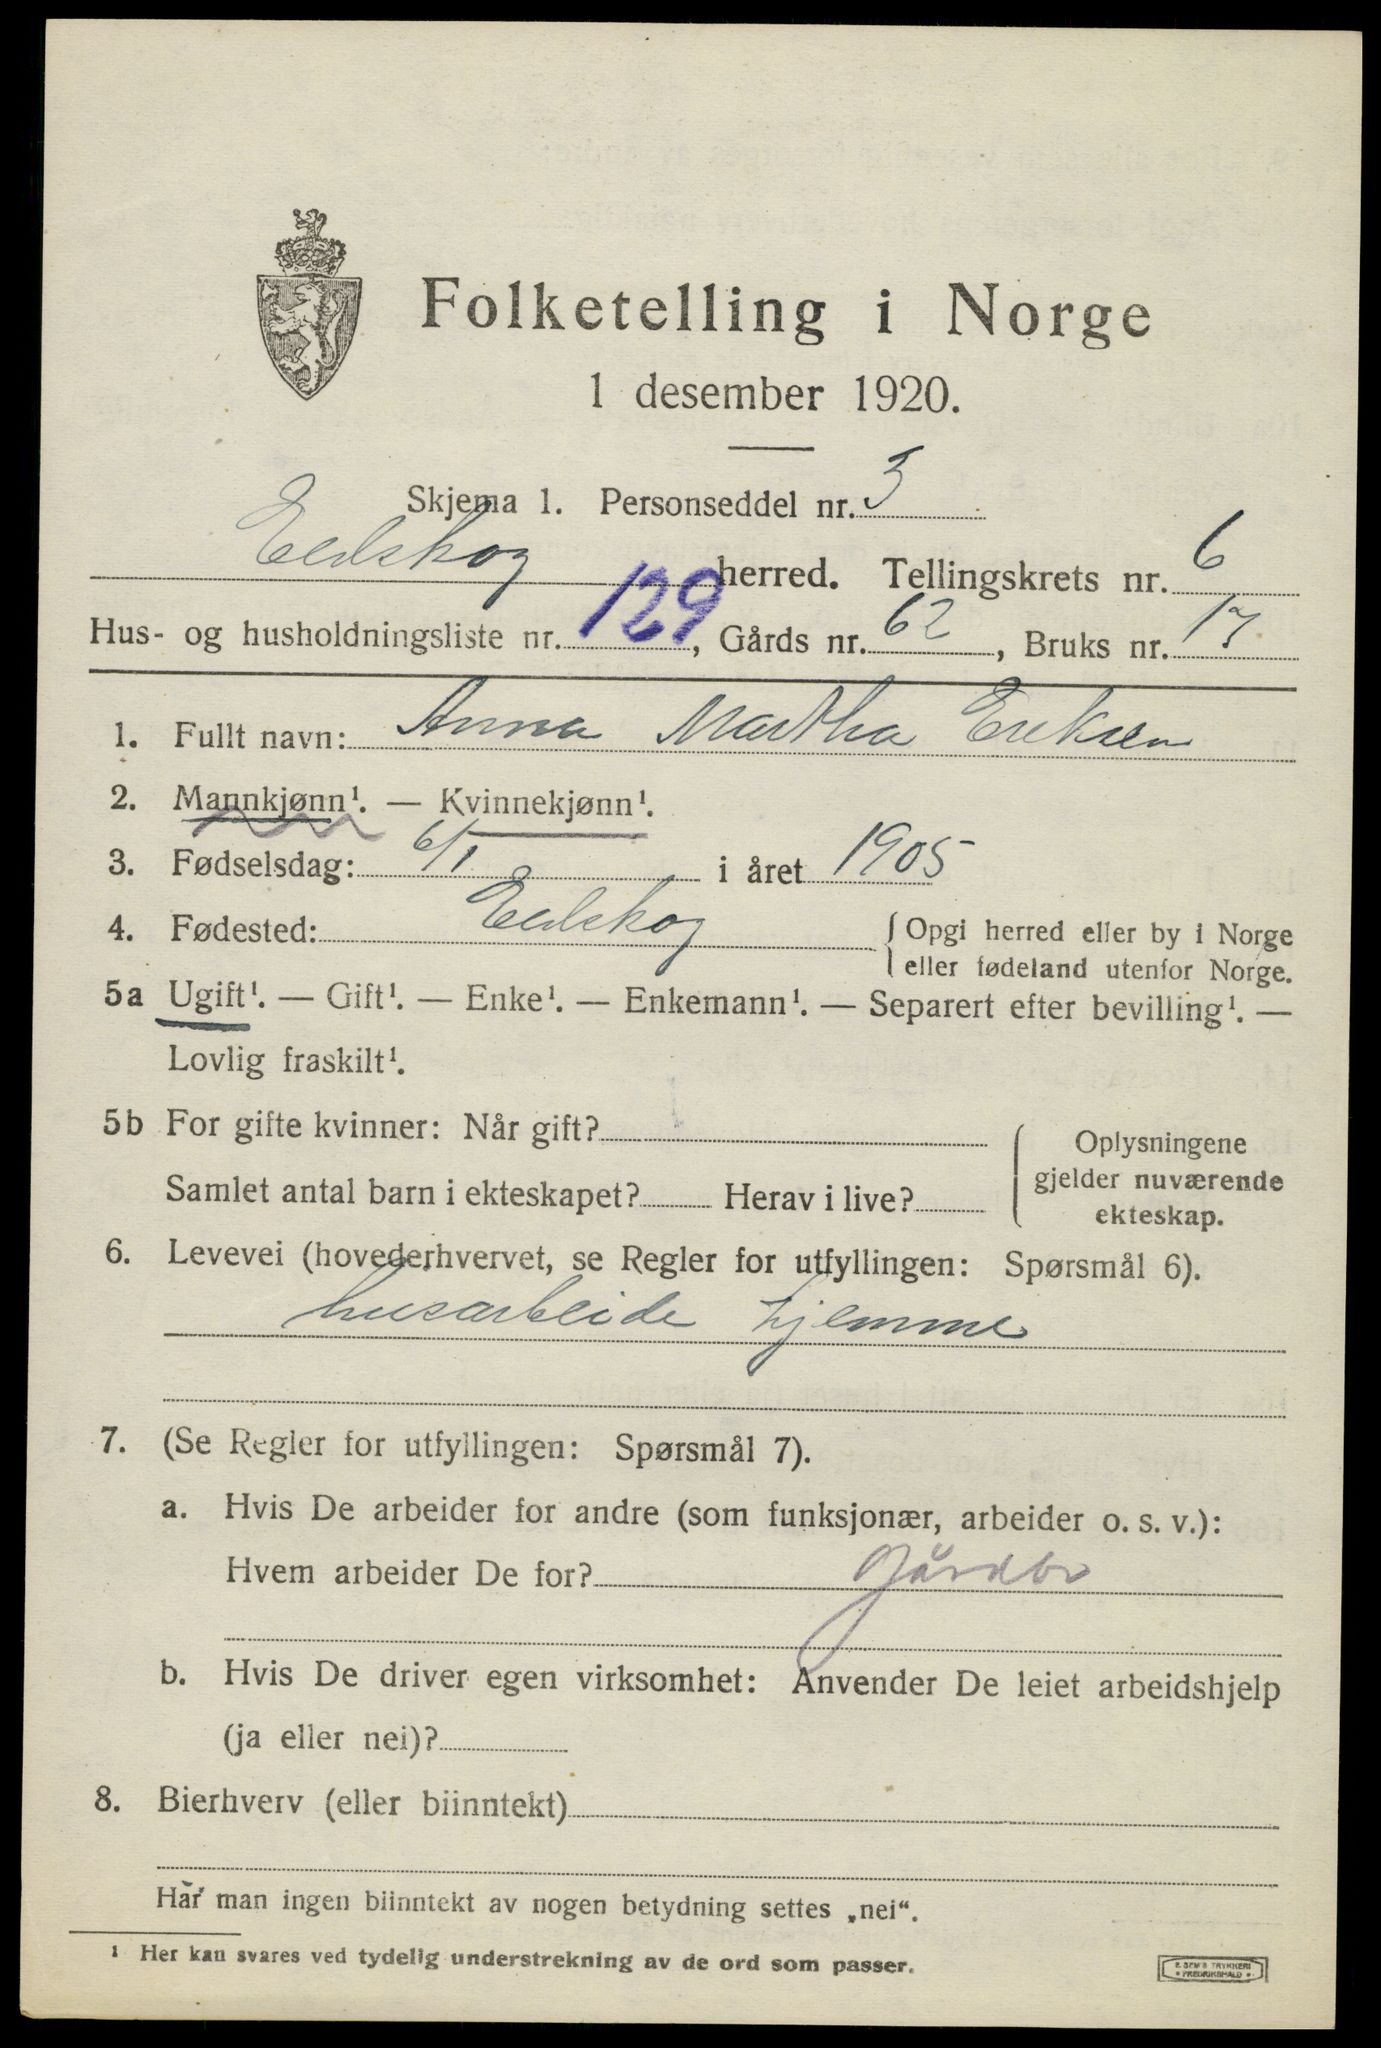 Folketelling i Norge
1 desember 1920.
Skjema 1. Personseddel nr. 3
Eidskog herred. Tellingskrets nr. 6
Hus- og husholdningsliste nr. 129, Gårds nr. 62, Bruks nr. 17
1. Fullt navn: Anna Martha Eriksen
2. Mannkjønn¹. — Kvinnekjønn¹.
3. Fødselsdag: 6/1 i året 1905
4. Fødested: Eidskog { Opgi herred eller by i Norge
eller fødeland utenfor Norge.
5a Ugift¹. — Gift¹. — Enke¹. — Enkemann¹. — Separert efter bevilling¹. —
Lovlig fraskilt¹.
5b For gifte kvinner: Når gift?
Samlet antal barn i ekteskapet? Herav i live?
Oplysningene
gjelder nuværende
ekteskap.
6. Levevei (hovederhvervet, se Regler for utfyllingen: Spørsmål 6).
husarbeide hjemme
7. (Se Regler for utfyllingen: Spørsmål 7).
a. Hvis De arbeider for andre (som funksjonær, arbeider o. s. v.):
Hvem arbeider De for? Gårdbr
b. Hvis De driver egen virksomhet: Anvender De leiet arbeidshjelp
(ja eller nei)?
8. Bierhverv (eller biinntekt)
Har man ingen biinntekt av nogen betydning settes „nei“.
¹ Her kan svares ved tydelig understrekning av de ord som passer.
E. SEM'S TRYKKERI
• FREDRIKSHALD •